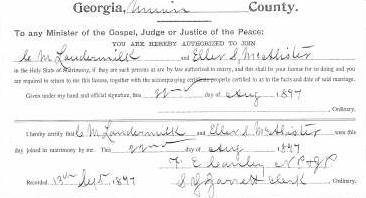 Georgia, Union County.
To any Minister of the Gospel, Judge or Justice of the Peace:
YOU ARE HEREBY AUTHORIZED TO JOIN
C M Laudermilk and Eller S. McAllister
in the Holy State of Matrimony, if they are such persons as are by law authorized to marry, and this shall be your license for so doing and you
are required to return to me this license, together with the accompanying certificate properly certified to as to the facts and date of said marriage.
Given under my hand and official signature, this day of Aug 1897
, Ordinary.
I hereby certify that C M Laudermilk and Eller S McAllister were this
day joined in matrimony by me. This 22nd day of Aug 1897
N P & J P
Recorded, 13th Sept 1897 Garrett Clerk , Ordinary.